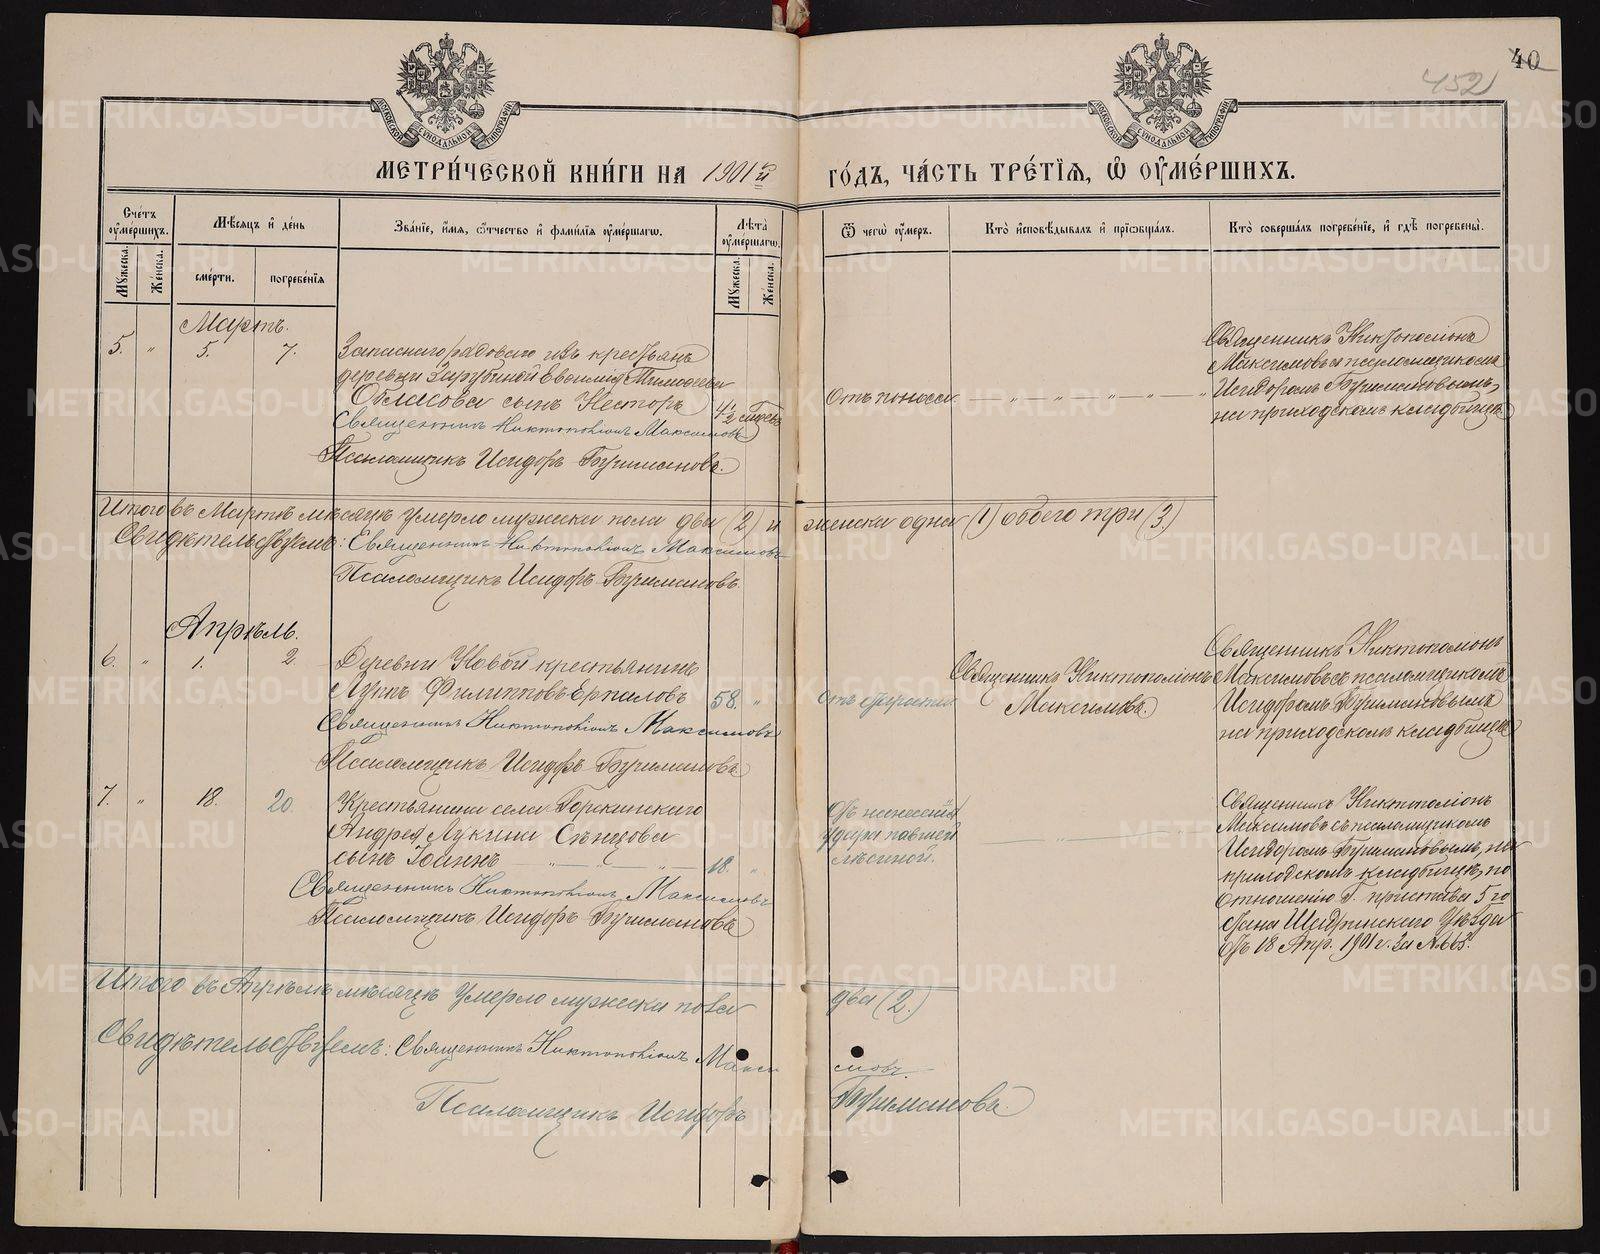 40
452
МОСКОВСКОЙ СѴНОДАЛЬНОЙ ТИПОГРАФІИ
МОСКОВСКОЙ СѴНОДАЛЬНОЙ ТИПОГРАФІИ
МЕТРИ́ЧЕСКОЙ КНИ́ГИ НА 1901й ГО́ДЪ, ЧА́СТЬ ТРЕ́ТІѦ, Ѡ ОУМЕ́РШИХЪ.
Сче́тъ оумершихъ.
Мꙋжеска.
Же́нска.
Мѣсяцъ и де́нь
сме́рти.
погребе́нія
Зва́ніе, и́мя, о́тчество и фами́лія оумершаго.
Лѣта оумершаго.
Мꙋжеска.
Же́нска.
Ѿ чего оумеръ.
Кто исповѣдывалъ и пріобщалъ.
Кто совершалъ погребе́ніе, и гдѣ погребены.
Мартъ.
5. " 5. 7.
Запаснаго рядоваго изъ крестьянъ
деревни Зарубиной Евѳимія Тимоѳеева
сынъ Несторъ
Священникъ Никтополіонъ Максимовъ
Псаломщикъ Исидоръ Бурмантовъ.
Отъ поноса
Священникъ Никтополіонъ
Максимовъ съ псаломщикомъ
Исидоромъ Бурмантовымъ,
на приходскомъ кладбищѣ
Итого въ Мартѣ мѣсяцѣ умерло мужеска пола два (2) и женска одна (1) обоего три (3.)
Свидѣтельствуемъ: Священникъ Никтополіонъ Максимовъ
Псаломщикъ Исидоръ Бурмантовъ.
Апрѣль.
6. " 1. 2.
Деревни Новой крестьянинъ
Лука Филипповъ Ерпаловъ 58. "
Священникъ Никтополіонъ Максимовъ
Псаломщикъ Исидоръ Бурмантовъ
отъ старости
Священникъ Никтополіонъ
Максимовъ.
Священникъ Никтополіонъ
Максимовъ съ псаломщикомъ
Исидоромъ Бурмантовымъ
на приходскомъ кладбищѣ
7. " 18. 20
Крестьянина села
Андрея Лукина Сѣнцова
сынъ Іоаннъ 18. "
Священникъ Никтополіонъ Максимовъ
Псаломщикъ Исидоръ Бурмантовъ
Отъ нанесенія
удара павшей
лѣсиной.
Священникъ Никтополіонъ
Максимовъ съ псаломщикомъ
Исидоромъ Бурмантовымъ, на
приходскомъ кладбищѣ, по
отношенію Г. пристава 5го
стана Шадринскаго Уѣзда
отъ 18 Апр. 1901 г. за №663.
Итого въ Апрѣлѣ мѣсяцѣ умерло мужеска пола два (2.)
Свидѣтельствуемъ: Священникъ Никтополіонъ Максимовъ.
Псаломщикъ Исидоръ Бурмантовъ.